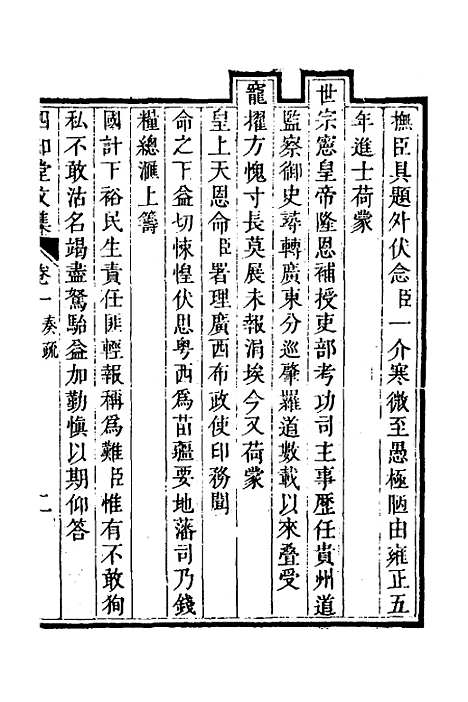 撫臣具題外伏念臣一介寒微至愚極陋由雍正五
年進士荷蒙
世宗憲皇帝隆恩補授吏部考功司主事歷任貴州道
監察御史尋轉廣東分巡肇羅道數載以來疊受
寵擢方愧寸長莫展未報涓埃今又荷蒙
皇上天恩命臣署理廣西布政使印務聞
命之下益切悚惶伏思粵西為苗疆要地藩司乃錢
糧總滙上籌
國計下裕民生責任匪輕報稱為難臣惟有不敢狥
私不敢沽名竭盡駑駘益加勤慎以期仰答
四知堂文集 卷一 奏疏 二